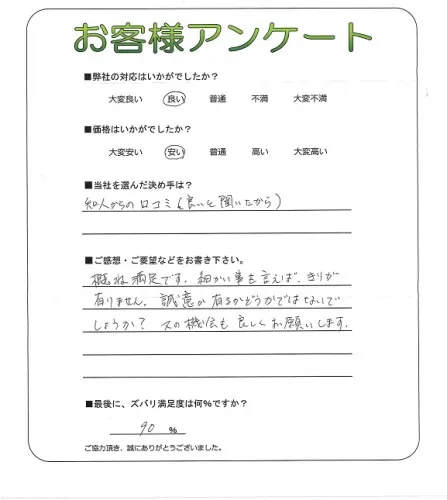 お客様アンケート
■弊社の対応はいかがでしたか？
大変良い 良い 普通 不満 大変不満
■価格はいかがでしたか？
大変安い 安い 普通 高い 大変高い
■当社を選んだ決め手は？
知人からの口コミ(良いと聞いたから)
■ご感想・ご要望などをお書き下さい。
概ね満足です。細かい事を言えば、きりが
有りません。誠意が有るかどうかではないで
しょうか？又の機会も良しくお願いします。
■最後に、ズバリ満足度は何%ですか？
90 %
ご協力頂き、誠にありがとうございました。